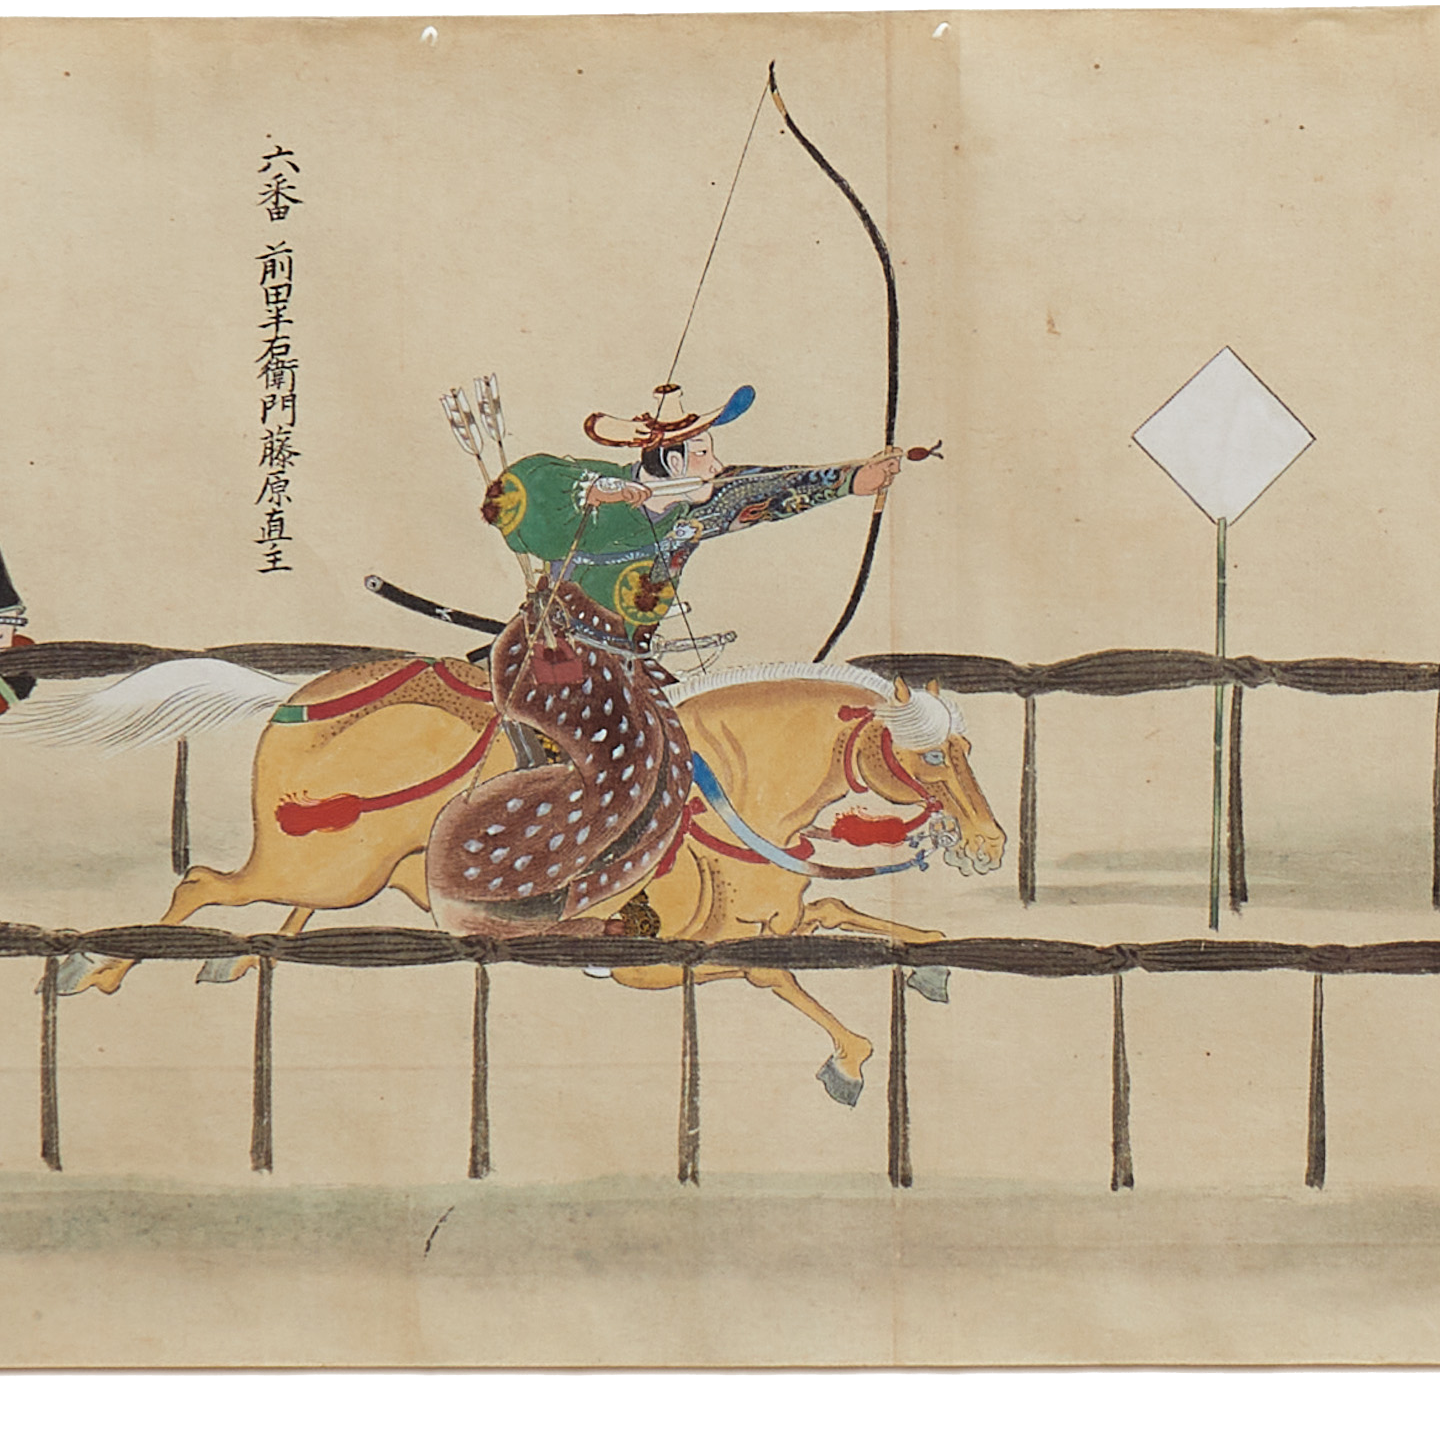 六番 前田半右衛門藤原直主